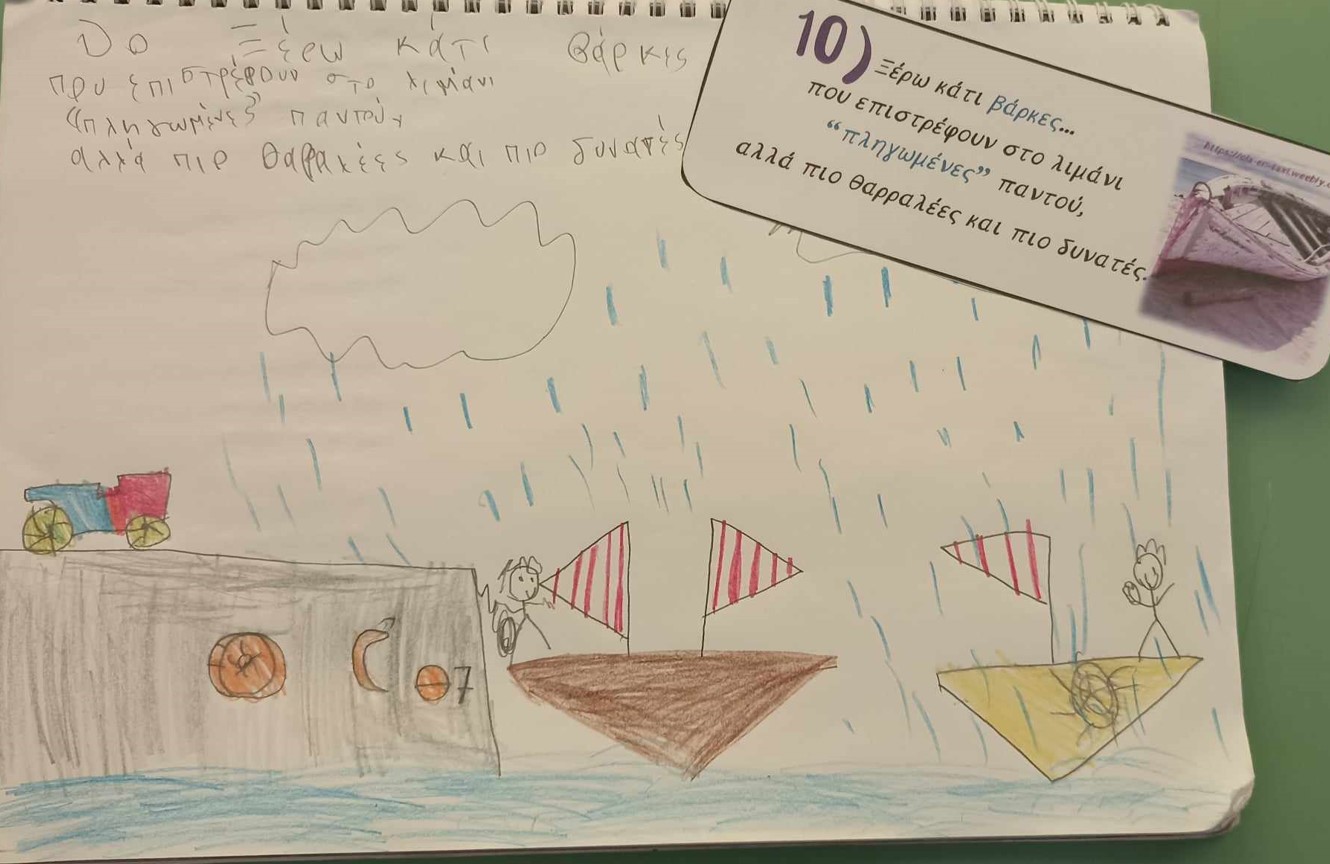 Ξέρω κάτι βάρκες
που επιστρέφουν στο λιμάνι
"πληγωμένες" παντού,
αλλά πιο θαραλέες και πιο δυνατές
10) Ξέρω κάτι βάρκες...
που επιστρέφουν στο λιμάνι
“πληγωμένες” παντού,
αλλά πιο θαρραλέες και πιο δυνατές.
7